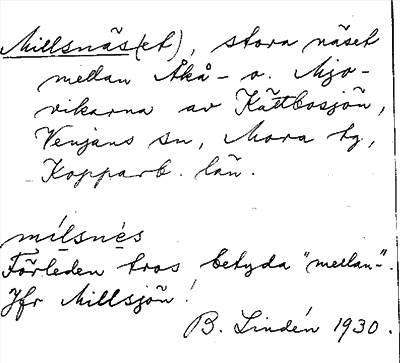 Millsnäs(et), stora näset
mellan Åkå- o. Mjo-
vikarna av Kättbosjön,
Venjans sn, Mora tg,
Kopparb. län.
mílsnés
Förleden tros betyda "mellan-".
Jfr Millsjön!
B. Lindén 1930.